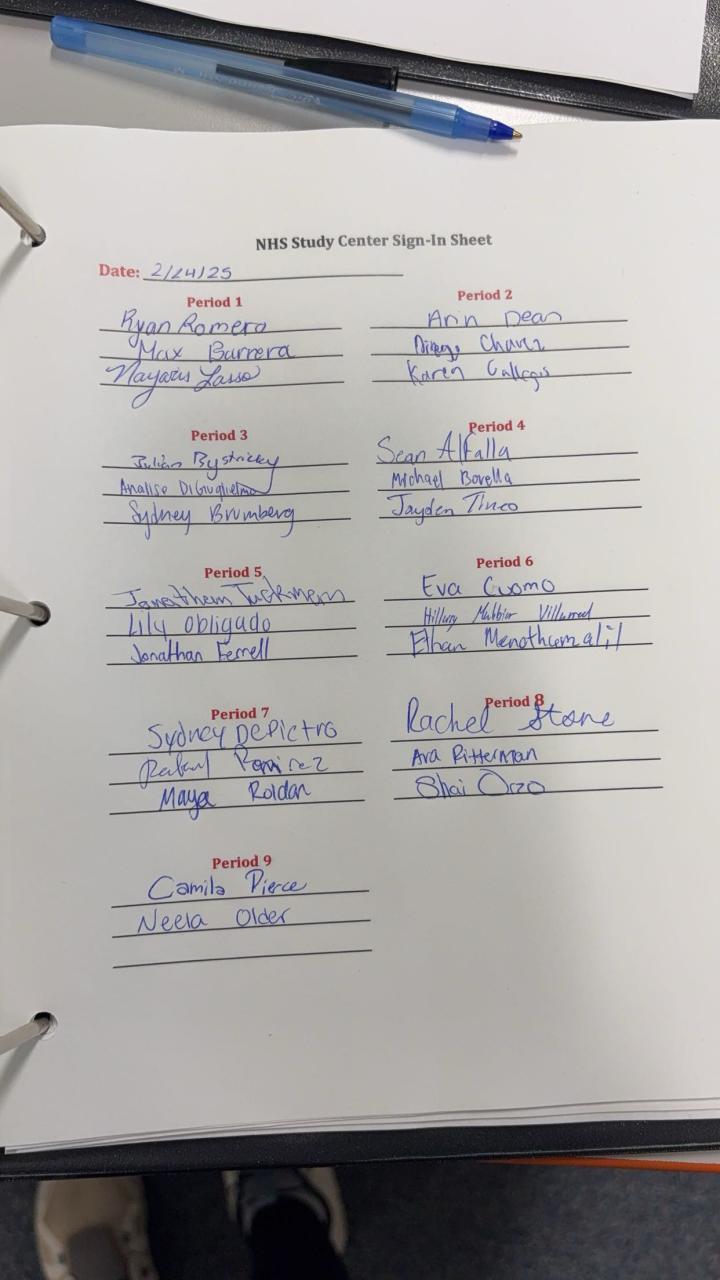 NHS Study Center Sign-In Sheet
Date: 2/24/25
Period 1
Ryan Romero
Max Barrera
Nayazis Lasso
Period 2
Arin Dean
Diego Chavez
Karen Gallegos
Period 3
Julian Bystricky
Analise DiGuglielmo
Sydney Brumberg
Period 4
Sean Alfalla
Michael Bovella
Jayden Tineo
Period 5
Jonathan Tuckman
Lily Obligado
Jonathan Ferrell
Period 6
Eva Cuomo
Hillary
Ethan Menothumalil
Period 7
Sydney DePietro
Rafael Ramirez
Maya Roldan
Period 8
Rachel Stone
Ava Ritterman
Shai Orzo
Period 9
Camila Pierce
Neela Older